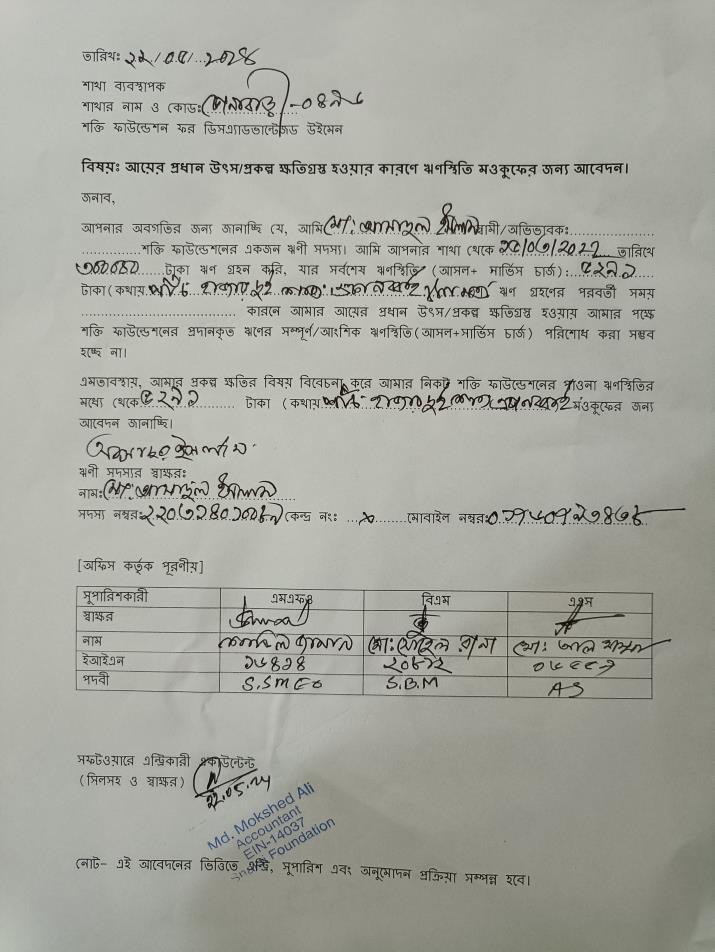 তারিখঃ ২২/০৫/২০২৪
শাখা ব্যবস্থাপক
শাখার নাম ও কোডঃ
শক্তি ফাউন্ডেশন ফর ডিসএ্যাডভান্টেজড উইমেন
বিষয়ঃ আয়ের প্রধান উৎস/প্রকল্প ক্ষতিগ্রস্থ হওয়ার কারণে ঋণস্থিতি মওকুফের জন্য আবেদন।
জনাব,
আপনার অবগতির জন্য জানাচ্ছি যে, আমি মো: স্বামী/অভিভাবক:
শক্তি ফাউন্ডেশনের একজন ঋণী সদস্য। আমি আপনার শাখা থেকে তারিখে
টাকা ঋণ গ্রহন করি, যার সর্বশেষ ঋণস্থিতি (আসল+ সার্ভিস চার্জ) : ৫২৯৯
টাকা (কথায় পাঁচ হাজার দুই শত ঋণ গ্রহণের পরবর্তী সময়
কারনে আমার আয়ের প্রধান উৎস/প্রকল্প ক্ষতিগ্রস্থ হওয়ায় আমার পক্ষে
শক্তি ফাউন্ডেশনের প্রদানকৃত ঋণের সম্পূর্ণ/আংশিক ঋণস্থিতি (আসল+সার্ভিস চার্জ) পরিশোধ করা সম্ভব
হচ্ছে না।
এমতাবস্থায়, আমার প্রকল্প ক্ষতির বিষয় বিবেচনা করে আমার নিকট শক্তি ফাউন্ডেশনের পাওনা ঋণস্থিতির
মধ্যে থেকে ৫২৯৯ টাকা (কথায় পাঁচ হাজার দুই শত মওকুফের জন্য
আবেদন জানাচ্ছি।
ঋণী সদস্যর স্বাক্ষরঃ
নাম: মো:
সদস্য নম্বর: কেন্দ্র নং: মোবাইল নম্বর:
[অফিস কর্তৃক পূরণীয়]
সুপারিশকারী এমএফও বিএম এএস
স্বাক্ষর
নাম মো: সোহেল রানা মো:
ইআইএন ১৬৪২৪
পদবী S.SMEO S.B.M AS
সফটওয়ারে এন্ট্রিকারী একাউন্টেন্ট
(সিলসহ ও স্বাক্ষর) 22.05.24
Md. Mokshed Ali
Accountant
EIN-14037
Foundation
নোট- এই আবেদনের ভিত্তিতে এন্ট্রি, সুপারিশ এবং অনুমোদন প্রক্রিয়া সম্পন্ন হবে।